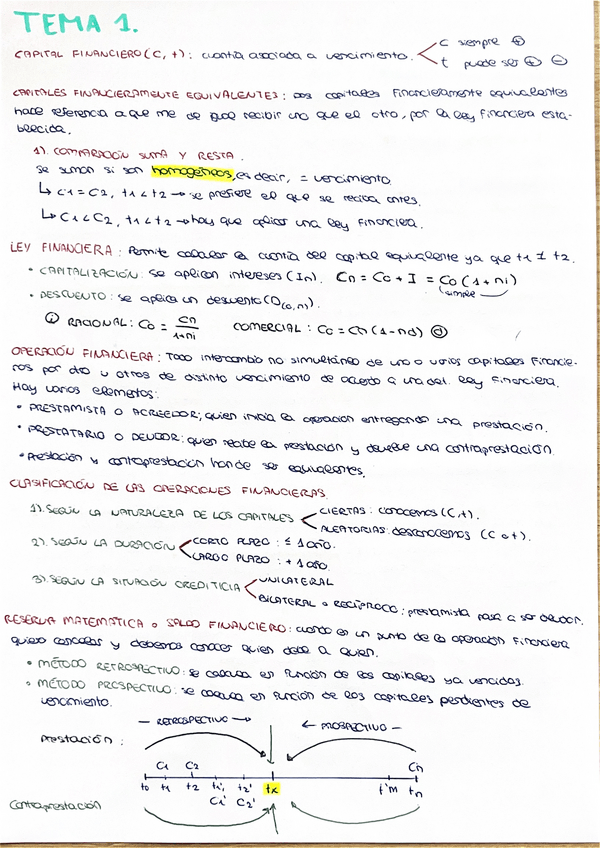 TEMA 1.
CAPITAL FINANCIERO (C, t): cuantía asociada a vencimiento. C siempre ⊕
t puede ser ⊕ ⊖
CAPITALES FINANCIERAMENTE EQUIVALENTES: dos capitales financieramente equivalentes
hace referencia a que me da igual recibir uno que el otro, por la ley financiera esta-
blecida.
1). COMPARACIÓN SUMA Y RESTA.
Se suman si son homogéneos, es decir, = vencimiento.
↳ C1 = C2, t1 < t2 → se prefiere el que se reciba antes.
↳ C1 < C2, t1 < t2 → hay que aplicar una ley financiera.
LEY FINANCIERA: Permite calcular la cuantía del capital equivalente ya que t1 ≠ t2.
• CAPITALIZACIÓN: se aplican intereses (In). Cn = C0 + I = C0 (1 + ni)
simple
• DESCUENTO: se aplica un descuento (D(0,n)).
ⓘ RACIONAL: C0 = Cn / 1+ni COMERCIAL: C0 = Cn (1 - nd) ⓓ
OPERACIÓN FINANCIERA: Todo intercambio no simultáneo de uno o varios capitales financie-
ros por otro u otros de distinto vencimiento de acuerdo a una det. ley financiera.
Hay varios elementos:
• PRESTAMISTA O ACREEDOR: quien inicia la operación entregando una prestación.
• PRESTATARIO O DEUDOR: quien recibe la prestación y devuelve una contraprestación.
• Prestación y contraprestación han de ser equivalentes.
CLASIFICACIÓN DE LAS OPERACIONES FINANCIERAS
1). SEGÚN LA NATURALEZA DE LOS CAPITALES CIERTAS: conocemos (C, t).
ALEATORIAS: desconocemos (C o t).
2). SEGÚN LA DURACIÓN CORTO PLAZO: ≤ 1 año.
LARGO PLAZO: + 1 año.
3). SEGÚN LA SITUACIÓN CREDITICIA UNILATERAL
BILATERAL o RECÍPROCO: prestamista pasa a ser deudor.
RESERVA MATEMÁTICA o SALDO FINANCIERO: cuando en un punto de la operación financiera
quiero cancelar y debemos conocer quien debe a quien.
• MÉTODO RETROSPECTIVO: se calcula en función de los capitales ya vencidos.
• MÉTODO PROSPECTIVO: se calcula en función de los capitales pendientes de
vencimiento.
— RETROSPECTIVO → ← PROSPECTIVO —
Prestación:
C1 C2 Cn
t0 t1 t2 t1' t2' tx t'm tn
C1' C2'
Contraprestación